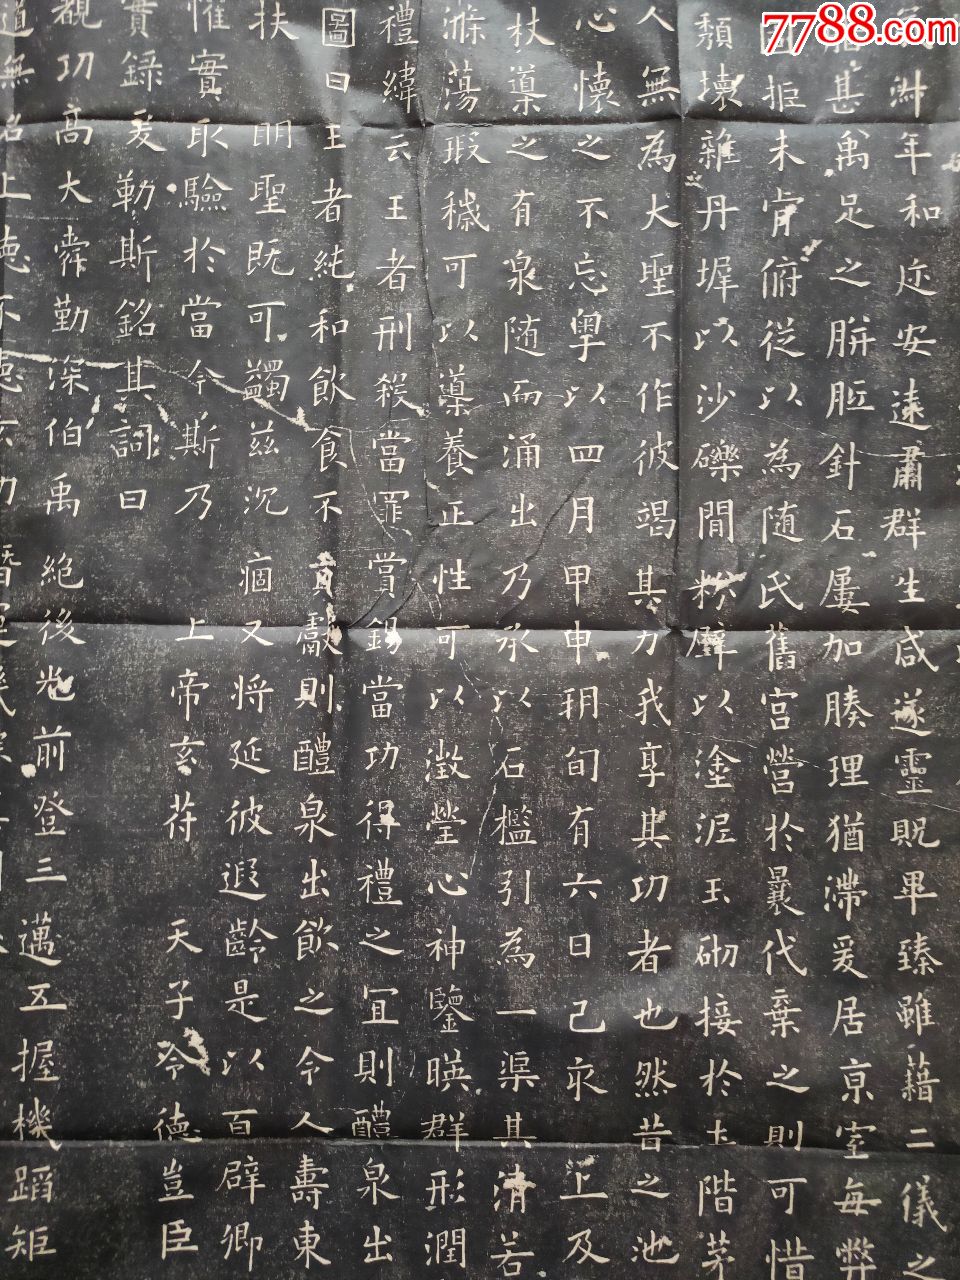 淑年和迩安遠肅群生咸遂靈貺畢臻雖藉二儀之
甚禹足之胼胝針石屢加腠理猶滯爰居京室每弊
拒未肯俯從以為随氏舊宮營於曩代棄之則可惜
頹壞雜丹墀以沙礫間粉壁以塗泥玉砌接於土階茅
人無為大聖不作彼竭其力我享其功者也然昔之池
心懷之不忘粵以四月甲申朔旬有六日己亥上及
杖導之有泉随而涌出乃承以石檻引為一渠其清若
滌蕩瑕穢可以導養正性可以澂瑩心神鑒暎群形潤
禮緯云王者刑殺當罪賞錫當功得禮之宜則醴泉出
圖曰王者純和飲食不貢獻則醴泉出飲之令人壽東
扶明聖既可蠲茲沉痼又將延彼遐齡是以百辟卿
惟實取驗於當今斯乃上帝玄符天子令德豈臣
實錄爰勒斯銘其詞曰
觀功高大舜勤深伯禹絕後光前登三邁五握機蹈矩
道無名上德不德
7788.com